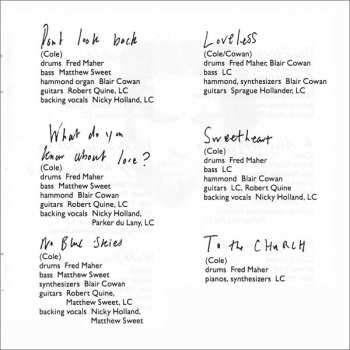 Don't look back
(Cole)
drums Fred Maher
bass Matthew Sweet
hammond organ Blair Cowan
guitars Robert Quine, LC
backing vocals Nicky Holland, LC
What do you
know about love?
(Cole)
drums Fred Maher
bass Matthew Sweet
hammond Blair Cowan
guitars Robert Quine, LC
backing vocals Nicky Holland,
Parker du Lany, LC
No Blue Skies
(Cole)
drums Fred Maher
bass Matthew Sweet
synthesizers Blair Cowan
guitars Robert Quine,
Matthew Sweet, LC
backing vocals Nicky Holland,
Matthew Sweet
Loveless
(Cole/Cowan)
drums Fred Maher, Blair Cowan
bass LC
hammond, synthesizers Blair Cowan
guitars Sprague Hollander, LC
Sweetheart
(Cole)
drums Fred Maher
bass LC
hammond Blair Cowan
guitars LC, Robert Quine
backing vocals Nicky Holland, LC
To the CHURCH
(Cole)
drums Fred Maher
pianos, synthesizers LC